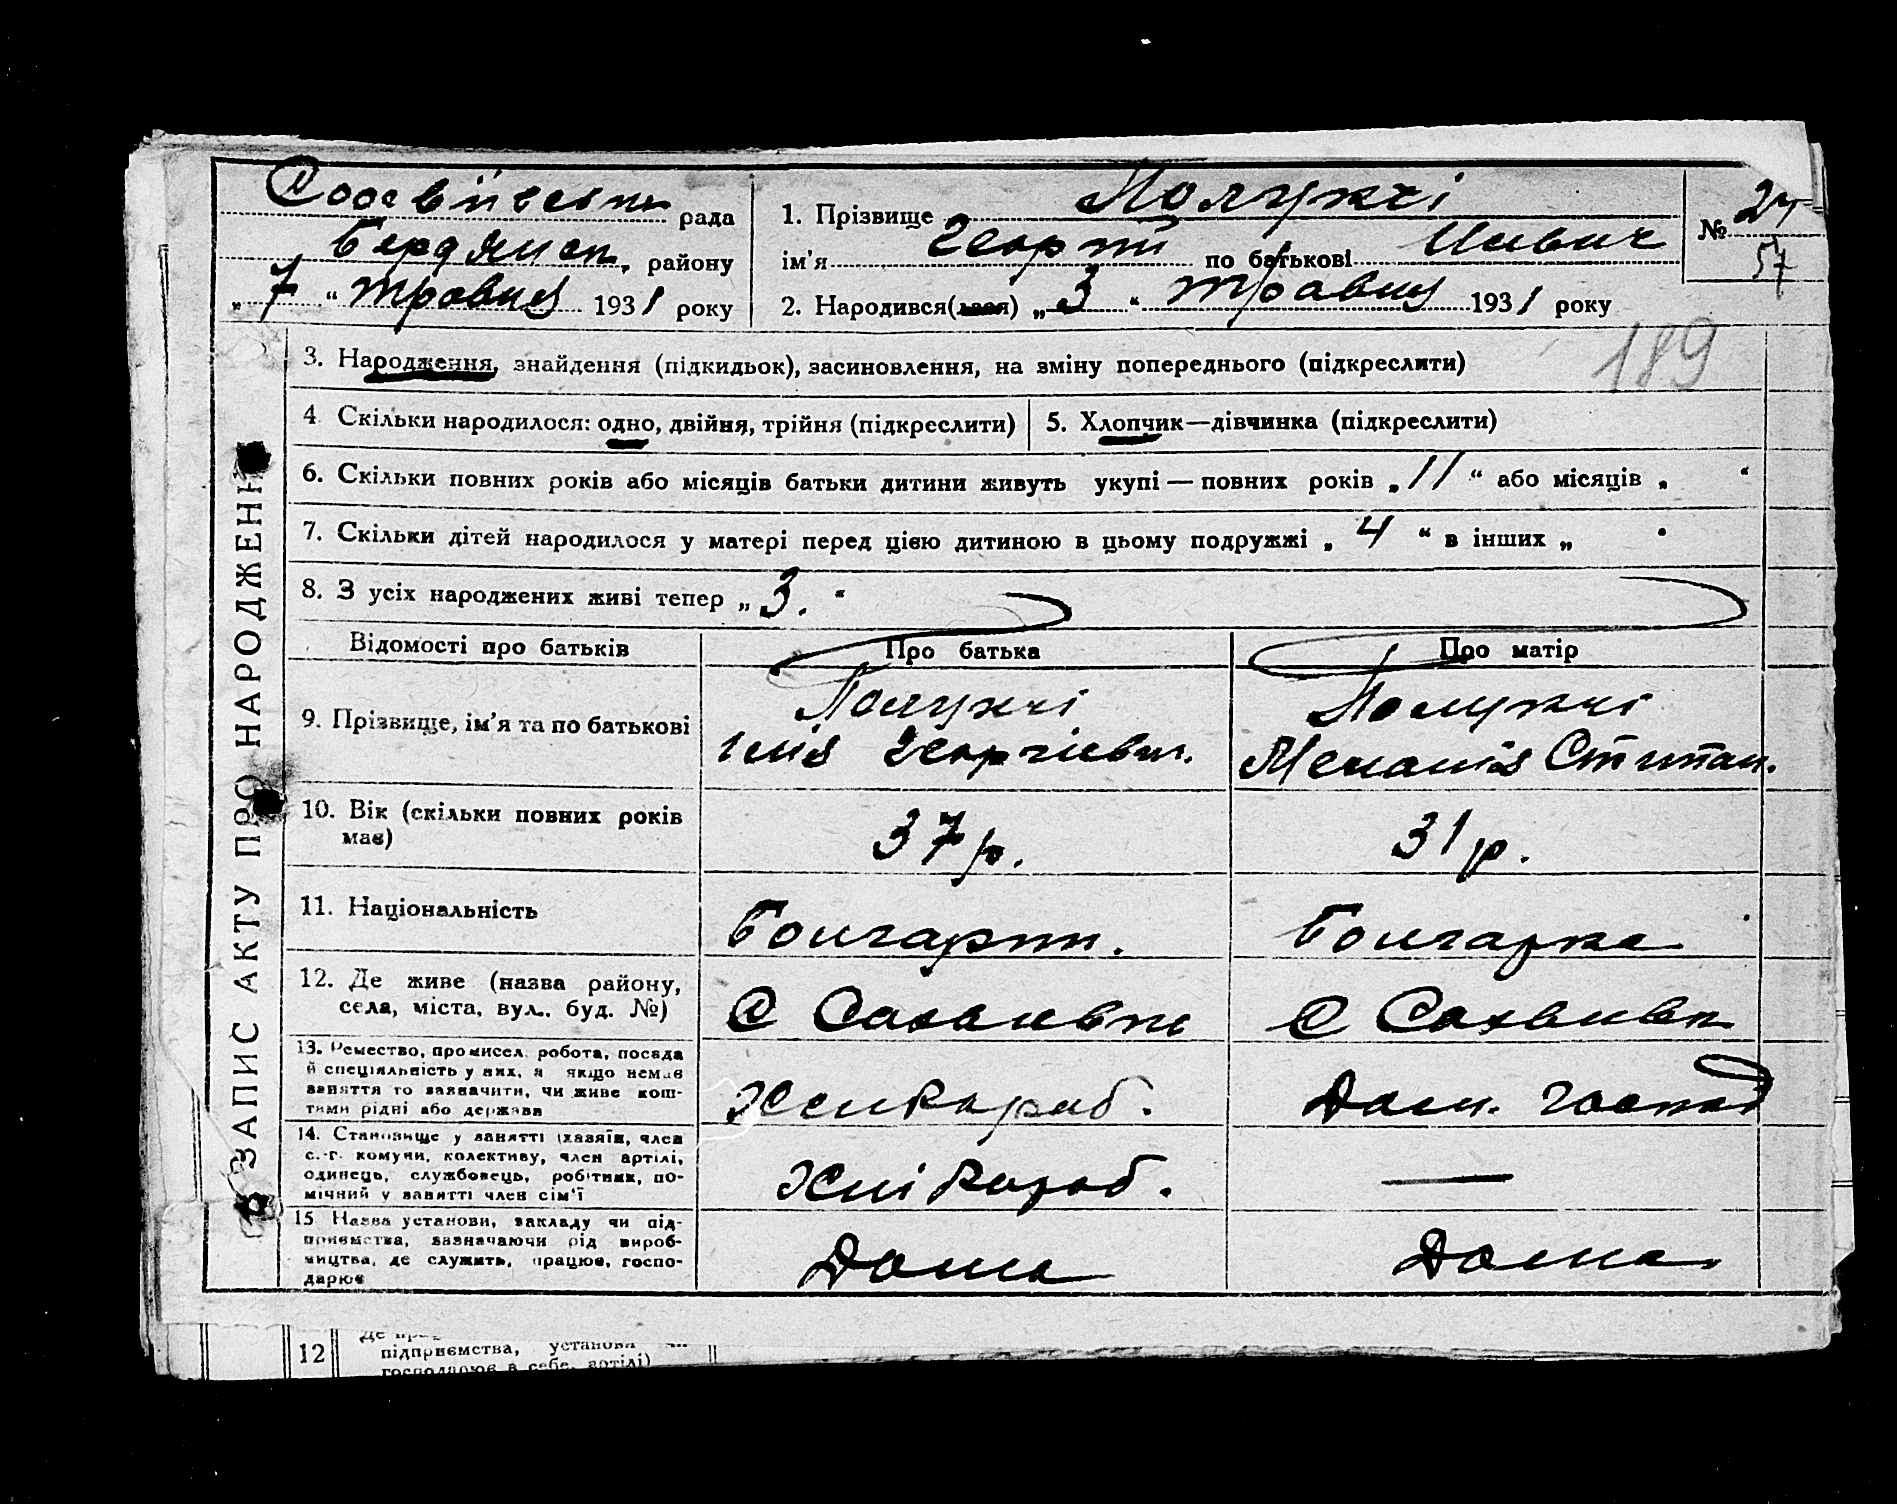 Софіївська рада
Бердянськ. району
„ 7 “ травня 1931 року
1. Прізвище Полукчі
ім'я Георгій по батькові Ілльич
2. Народився(лася) „ 3 “ травня 1931 року
№ 24
57
189
ЗАПИС АКТУ ПРО НАРОДЖЕННЯ
3. Народження, знайдення (підкидьок), засиновлення, на зміну попереднього (підкреслити)
4 Скільки народилося: одно, двійня, трійня (підкреслити)
5. Хлопчик—дівчинка (підкреслити)
6. Скільки повних років або місяців батьки дитини живуть укупі — повних років „ 11 “ або місяців „ “
7. Скільки дітей народилося у матері перед цією дитиною в цьому подружжі „ 4 “ в інших „ “
8. З усіх народжених живі тепер „ 3. “
Відомості про батьків
Про батька
Про матір
9. Прізвище, ім'я та по батькові
Полукчі
Ілія Георгієвич.
Полукчі
Меланія Степан.
10. Вік (скільки повних років
має)
37 р.
31 р.
11. Національність
Болгарин.
Болгарка
12. Де живе (назва району,
села, міста, вул.. буд. №)
С
С
13. Ремество, промисел, робота, посада
й спеціяльність у них, а якщо немає
заняття то зазначити, чи живе кош-
тами рідні або держава
Хлібороб.
Дом. господ
14. Становище у занятті (хазяїн, член
с.-г. комуни, колективу, член артілі,
одинець, службовець, робітник, по-
мічний у занятті член сім'ї
Хлібороб.
—
15 Назва установи, закладу чи під-
приємства, зазначаючи рід вироб-
ництва, де служить, працює, госпо-
дарює
Дома
Дома.
12
Де пра
підприємства, установи чи
господарює в себе, артілі)